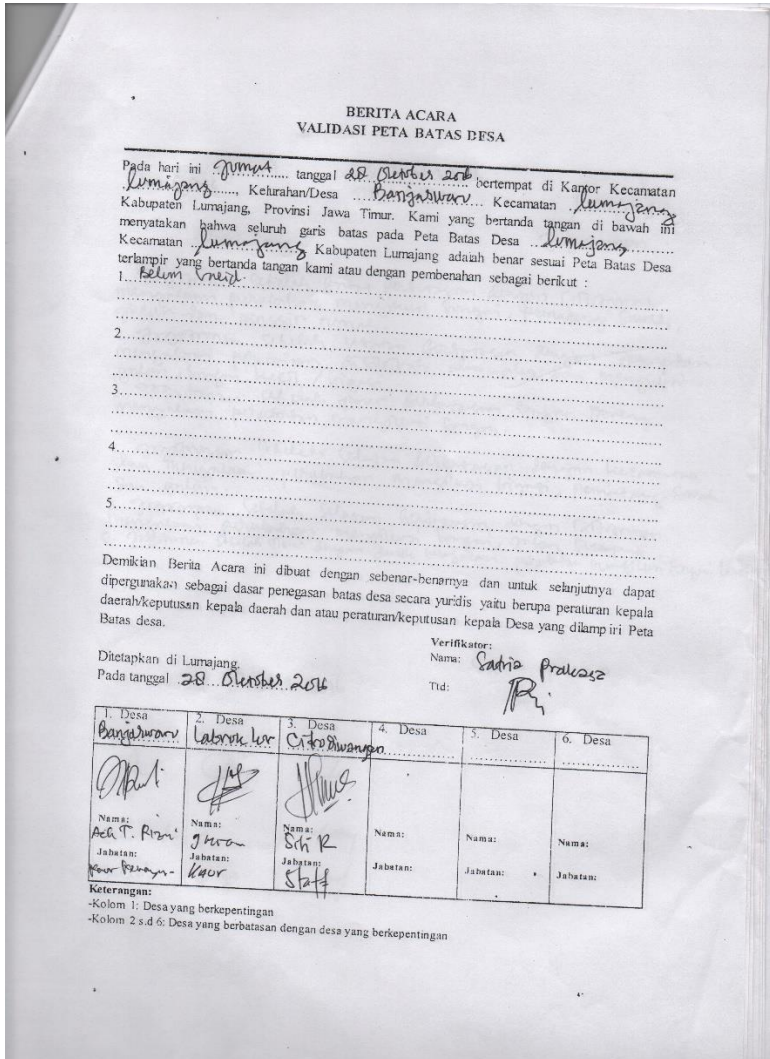 BERITA ACARA
VALIDASI PETA BATAS DESA
Pada hari ini Jumat tanggal 28 Oktober 2016 bertempat di Kantor Kecamatan
Lumajang, Kelurahan/Desa Banjarwaru Kecamatan Lumajang
Kabupaten Lumajang, Provinsi Jawa Timur. Kami yang bertanda tangan di bawah ini
menyatakan bahwa seluruh garis batas pada Peta Batas Desa Lumajang
Kecamatan Lumajang Kabupaten Lumajang adalah benar sesuai Peta Batas Desa
terlampir yang bertanda tangan kami atau dengan pembenahan sebagai berikut :
1. Belum
2.
3.
4.
5.
Demikian Berita Acara ini dibuat dengan sebenar-benarnya dan untuk selanjutnya dapat
dipergunakan sebagai dasar penegasan batas desa secara yuridis yaitu berupa peraturan kepala
daerah/keputusan kepala daerah dan atau peraturan/keputusan kepala Desa yang dilampiri Peta
Batas desa.
Verifikator:
Ditetapkan di Lumajang.
Nama: Satria Prakasa
Pada tanggal 28 Oktober 2016
Ttd:
1. Desa 2. Desa 3. Desa 4. Desa 5. Desa 6. Desa
Banjarwaru Labruk Lor Citrodiwangsan
Nama: Nama: Nama: Nama: Nama: Nama:
Ach T. Rizni Siti R
Jabatan: Jabatan: Jabatan: Jabatan: Jabatan: Jabatan:
Kaur Kaur Staff
Keterangan:
-Kolom 1: Desa yang berkepentingan
-Kolom 2 s.d 6: Desa yang berbatasan dengan desa yang berkepentingan